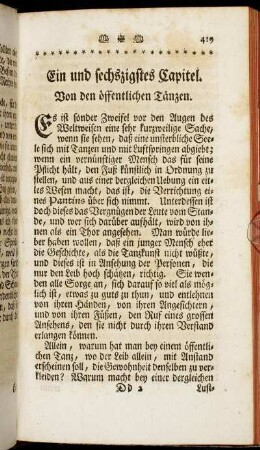 419
Ein und sechszigstes Capitel.
Von den öffentlichen Tänzen.
Es ist sonder Zweifel vor den Augen des
Weltweisen eine sehr kurzweilige Sache,
wenn sie sehen, daß eine unsterbliche See-
le sich mit Tanzen und mit Luftspringen abgiebt;
wenn ein vernünftiger Mensch das für seine
Pflicht hält, den Fuß künstlich in Ordnung zu
stellen, und aus einer dergleichen Uebung ein eite-
les Wesen macht, das ist, die Verrichtung ei-
nes Pantins über sich nimmt. Unterdessen ist
doch dieses das Vergnügen der Leute vom Stan-
de, und wer sich darüber aufhält, wird von ih-
nen als ein Thor angesehen. Man würde lie-
ber haben wollen, daß ein junger Mensch eher
die Geschichte, als die Tanzkunst nicht wüßte,
und dieses ist in Ansehung der Personen, die
nur den Leib hoch schätzen, richtig. Sie wen-
den alle Sorge an, sich darauf so viel als mög-
lich ist, etwas zu guts zu thun, und entlehnen
von ihren Händen, von ihren Angesichtern,
und von ihren Füßen, den Ruf eines grossen
Ansehens, den sie nicht durch ihren Verstand
erlangen können.
Allein, warum hat man bey einem öffentli-
chen Tanz, wo der Leib allein, mit Anstand
erscheinen soll, die Gewohnheit denselben zu ver-
kleiden? Warum macht bey einer dergleichen
Dd 2 Lust-